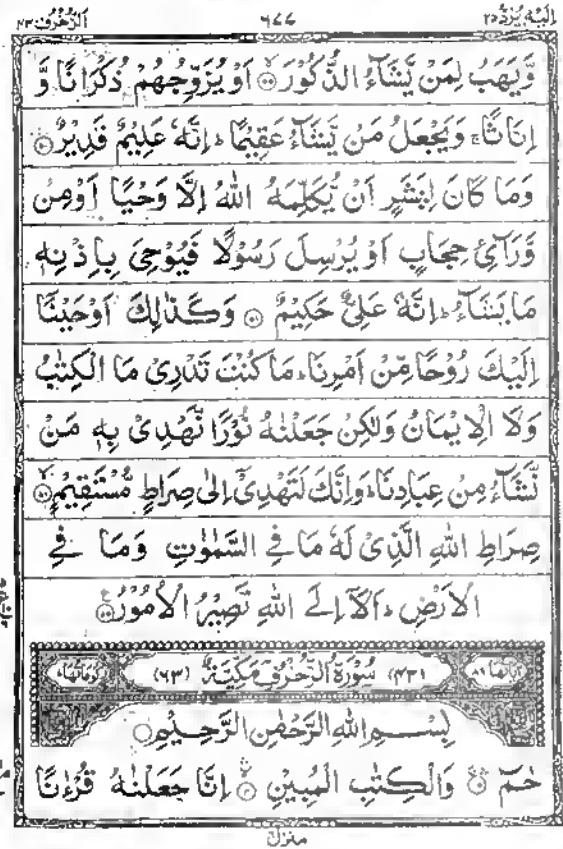 اِلَیْهِ یُرَدُّ ۲۵ ۶۷۷ اَلزُّخْرُف ۴۳
وَّیَهَبُ لِمَنْ یَّشَآءُ الذُّكُوْرَ ۙ۴۹ اَوْ یُزَوِّجُهُمْ ذُكْرَانًا وَّ
اِنَاثًا ۚ وَیَجْعَلُ مَنْ یَّشَآءُ عَقِیْمًا ؕ اِنَّهٗ عَلِیْمٌ قَدِیْرٌ ۵۰
وَمَا كَانَ لِبَشَرٍ اَنْ یُّكَلِّمَهُ اللّٰهُ اِلَّا وَحْیًا اَوْ مِنْ
وَّرَآئِ حِجَابٍ اَوْ یُرْسِلَ رَسُوْلًا فَیُوْحِیَ بِاِذْنِهٖ
مَا یَشَآءُ ؕ اِنَّهٗ عَلِیٌّ حَكِیْمٌ ۵۱ وَكَذٰلِكَ اَوْحَیْنَاۤ
اِلَیْكَ رُوْحًا مِّنْ اَمْرِنَا ؕ مَا كُنْتَ تَدْرِیْ مَا الْكِتٰبُ
وَلَا الْاِیْمَانُ وَلٰكِنْ جَعَلْنٰهُ نُوْرًا نَّهْدِیْ بِهٖ مَنْ
نَّشَآءُ مِنْ عِبَادِنَا ؕ وَاِنَّكَ لَتَهْدِیْۤ اِلٰی صِرَاطٍ مُّسْتَقِیْمٍ ۙ۵۲
صِرَاطِ اللّٰهِ الَّذِیْ لَهٗ مَا فِی السَّمٰوٰتِ وَمَا فِی
الْاَرْضِ ؕ اَلَاۤ اِلَی اللّٰهِ تَصِیْرُ الْاُمُوْرُ ۵۳
اٰیَاتُهَا ۸۹ (۴۳) سُوْرَةُ الزُّخْرُفِ مَكِّیَّةٌ (۶۳) رُكُوْعَاتُهَا ۷
بِسْمِ اللّٰهِ الرَّحْمٰنِ الرَّحِیْمِ
حٰمٓ ۚ۱ وَالْكِتٰبِ الْمُبِیْنِ ۙ۲ اِنَّا جَعَلْنٰهُ قُرْءٰنًا
منزل